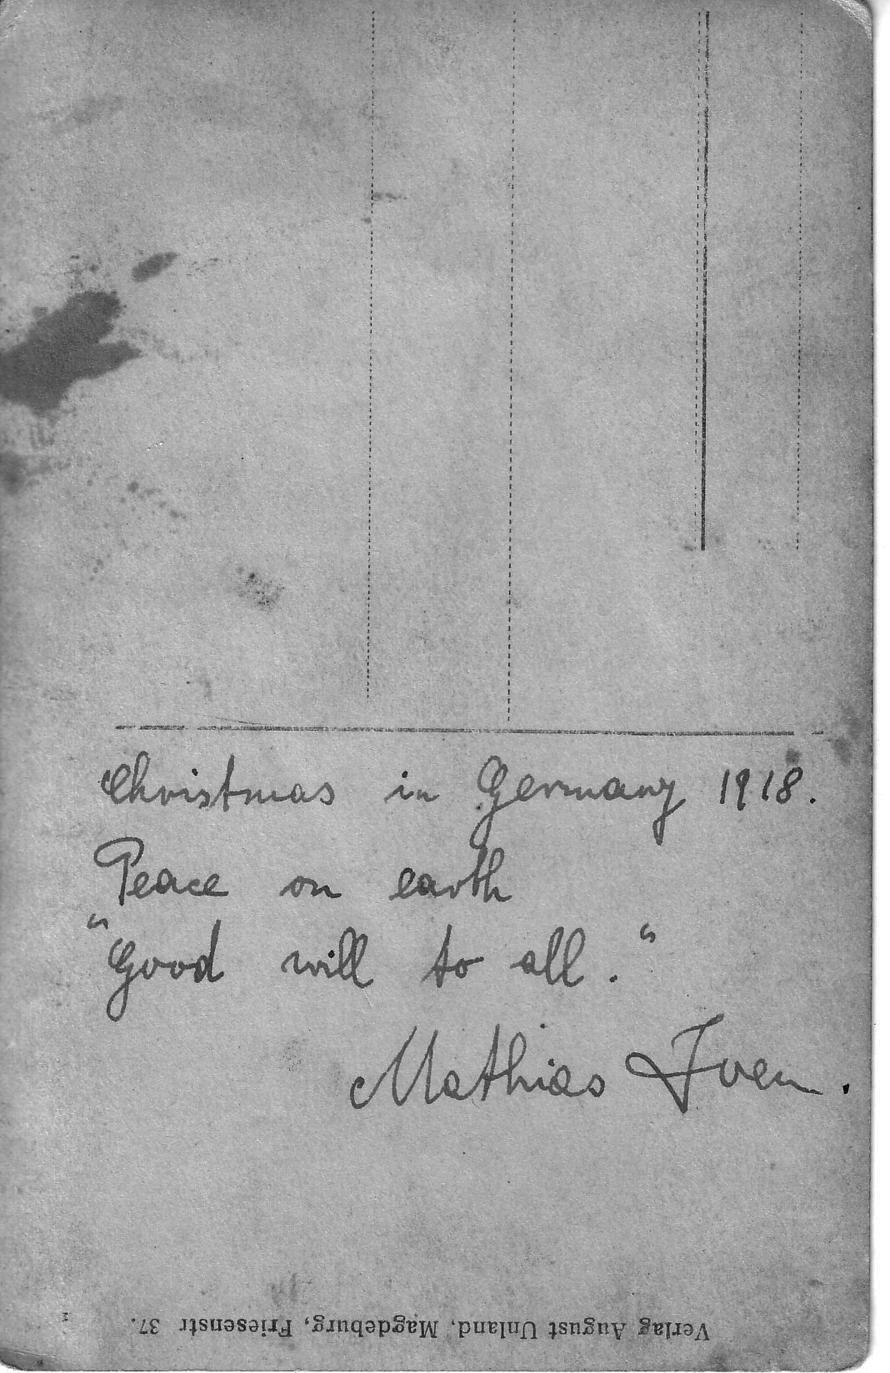 Christmas in Germany 1918.
Peace on earth
"Good will to all."
Mathias Iven.
Verlag August Unland, Magdeburg, Friesenstr 37.